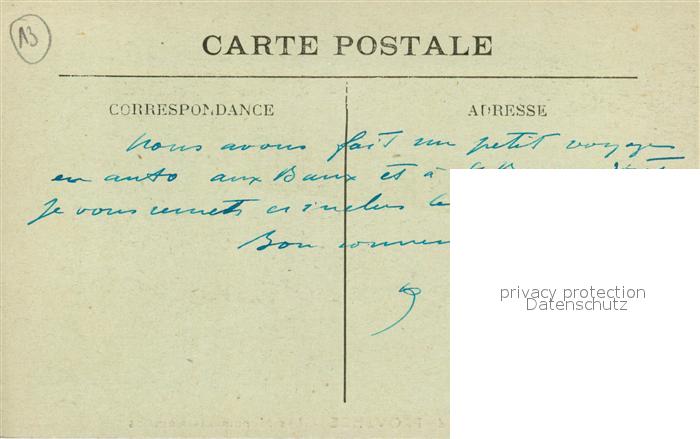 13
CARTE POSTALE
CORRESPONDANCE
ADRESSE
Nous avons fait un petit voyage
en auto aux Baux et à
Je vous remets ci inclus le
Bon
privacy protection
Datenschutz